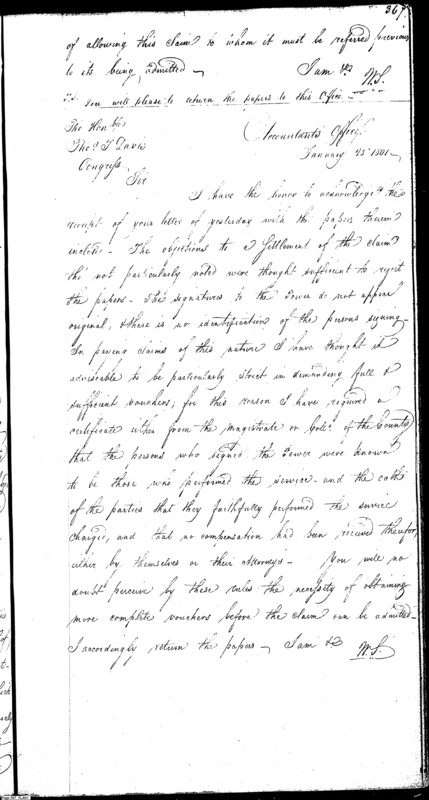 367
of allowing this Claim to whom it must be referred previous
to its being admitted — I am &c W.S.
You will please to return the papers to this Office —
The Honble
Thos. T Davis
Congress
Accountants Office
January 15th 1801 —
Sir
I have the honor to acknowledge the
receipt of your letter of yesterday with the papers therein
inclosed — The objections to a Settlement of the claim
tho' not particularly noted were thought sufficient to reject
the papers — The signatures to the Power do not appear
original, & there is no identification of the persons signing —
In paying claims of this nature I have thought it
adviseable to be particularly strict in demanding full &
sufficient vouchers; for this reason I have required a
certificate either from the Magistrate or Colo. of the County
that the persons who signed the Power were known
to be those who performed the service — and the oaths
of the parties that they faithfully performed the service
charged, and that no compensation had been received therefor,
either by themselves or their Attorneys — You will no
doubt perceive by these rules the necessity of obtaining
more complete vouchers before the claim can be admitted —
I accordingly return the papers — I am &c W.S.